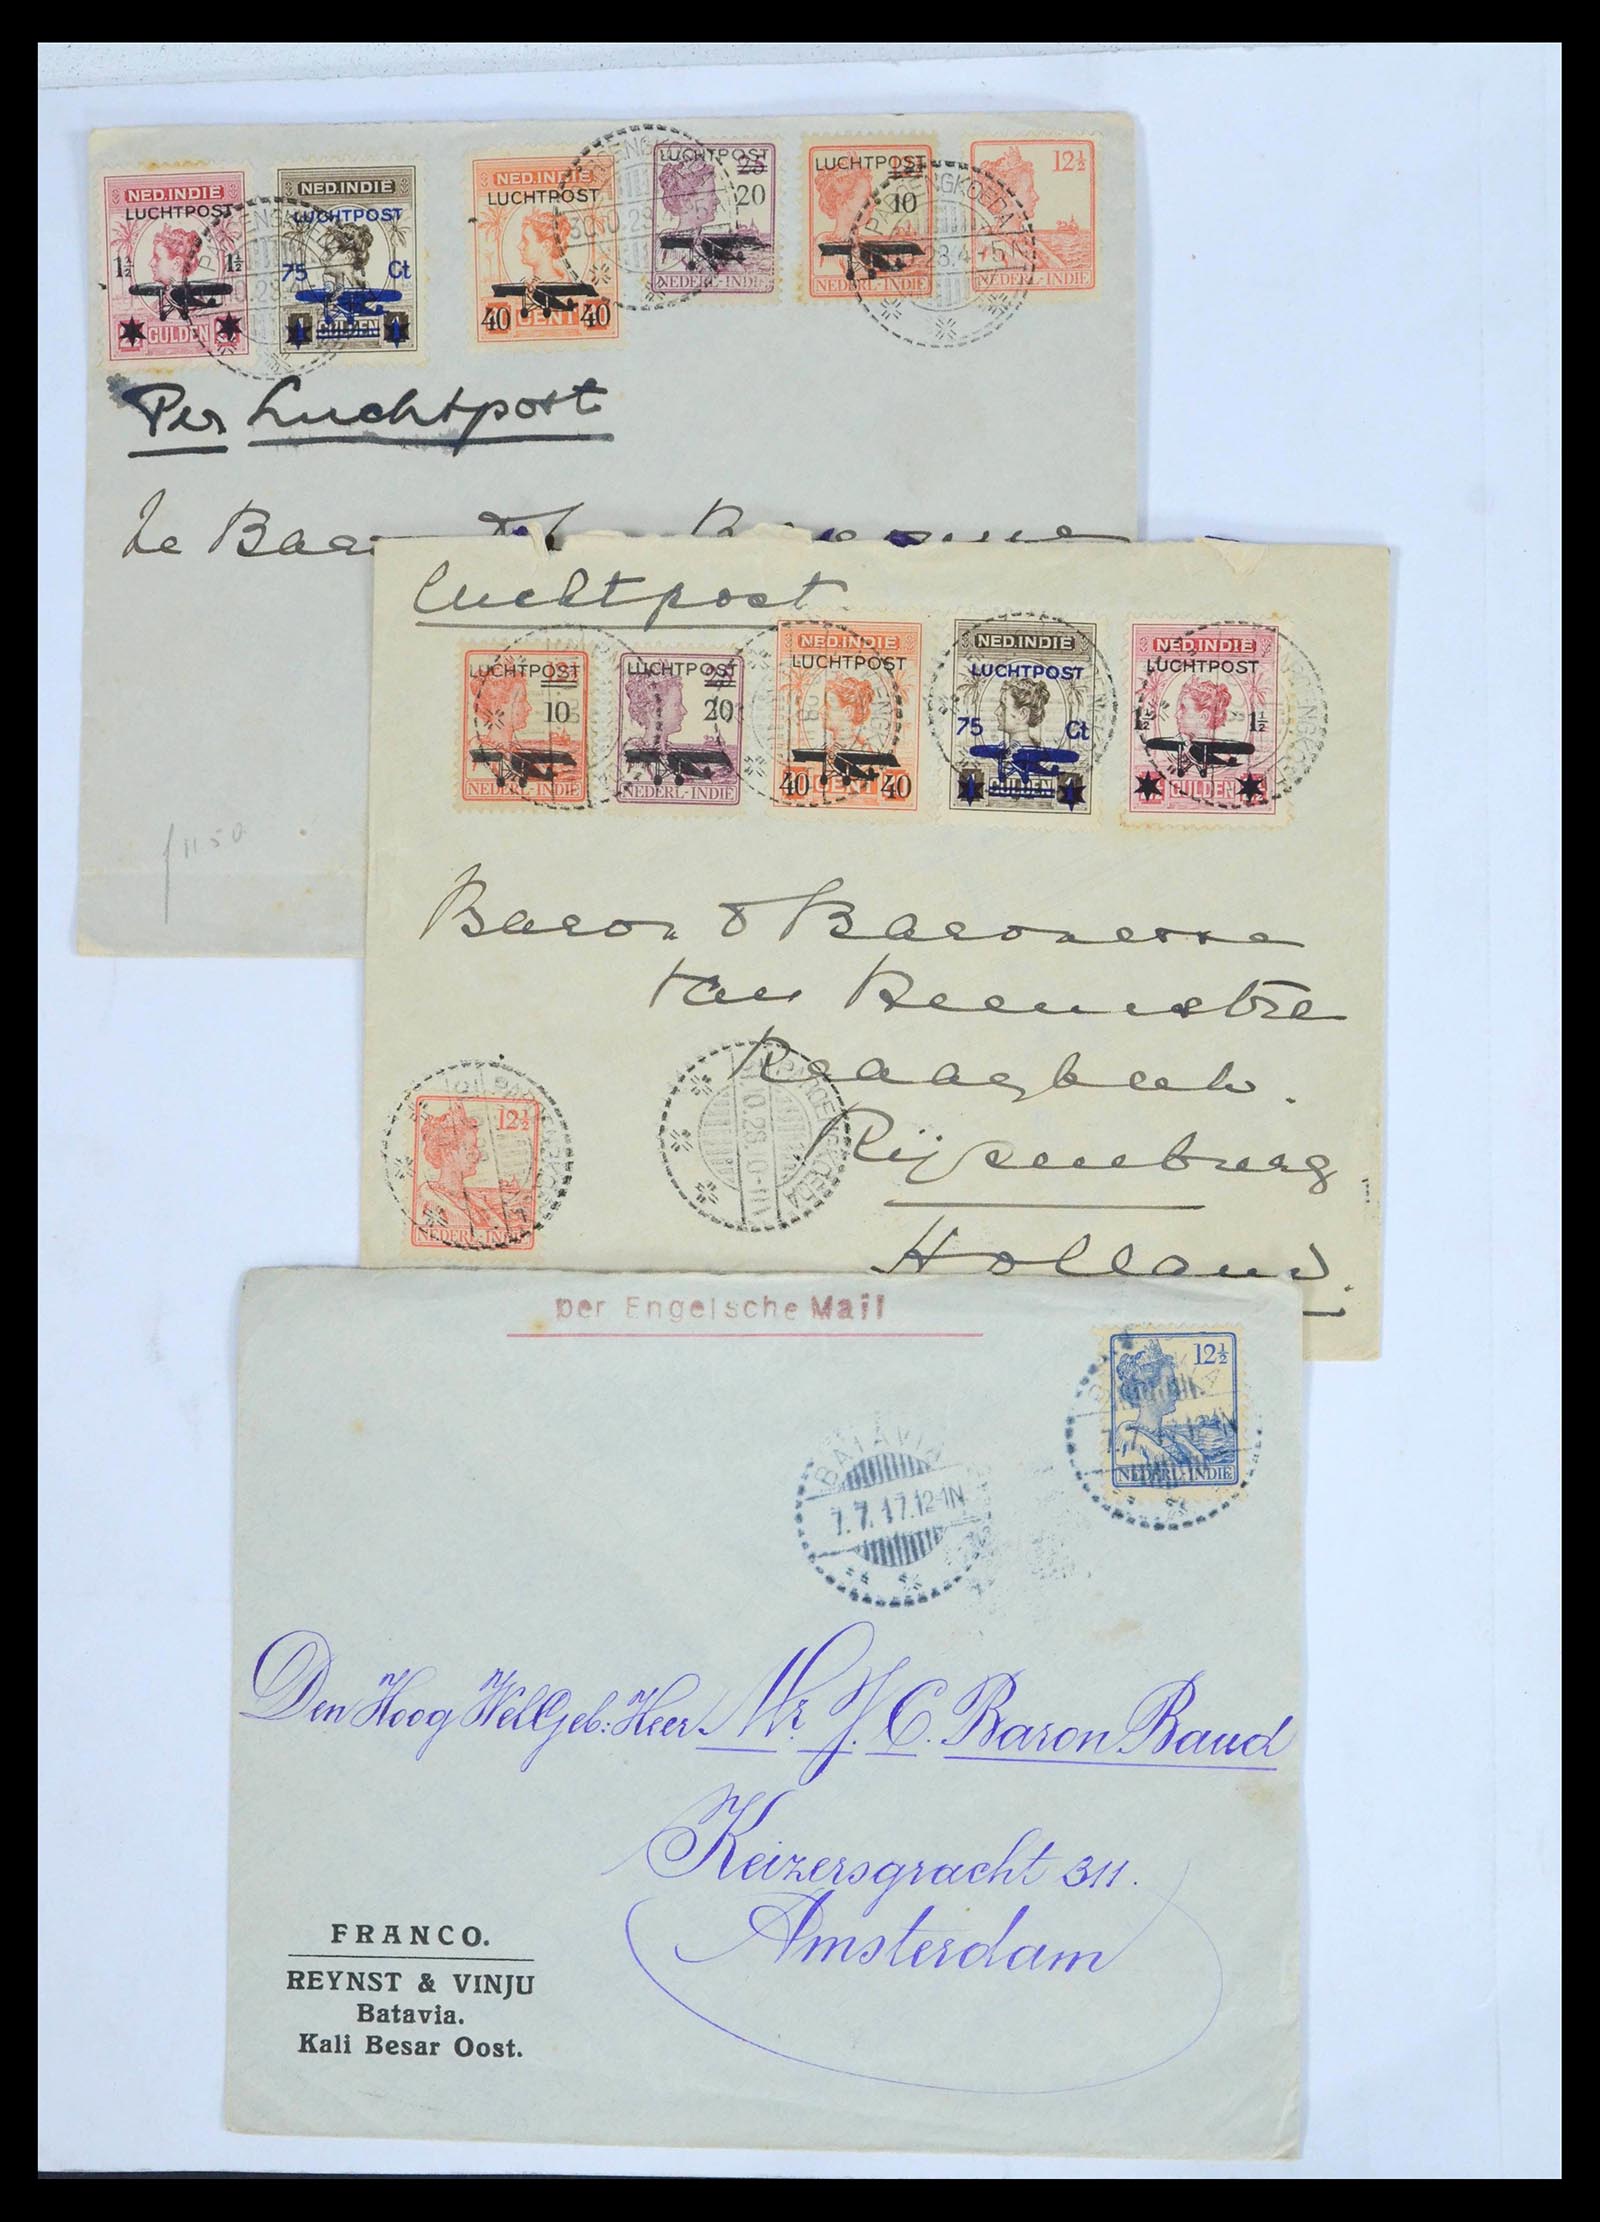 NED.INDIË LUCHTPOST 1½ 1½ GULDEN
NED.INDIË LUCHTPOST 75 Ct 1 GULDEN 1
NED.INDIË LUCHTPOST 40 CENT 40
LUCHTPOST 25 20 NEDERL-INDIE
LUCHTPOST 10 NEDERL-INDIE
12½ NEDERL-INDIE
Per Luchtpost
f 1150
Luchtpost
LUCHTPOST 10 NEDERL-INDIE
LUCHTPOST 20 NEDERL-INDIE
NED.INDIË LUCHTPOST 40 CENT 40
NED.INDIË LUCHTPOST 75 Ct 1 GULDEN 1
NED.INDIË LUCHTPOST 1½ 1½ GULDEN
Baron & Baronesse
van Heemstra
Rijsenburg
Holland.
12½ NEDERL-INDIE
per Engelsche Mail
12½ NEDERL-INDIE
BATAVIA
7.7.17.12-1N
Den Hoog WelGeb: Heer Mr J. C. Baron Baud
Keizersgracht 311.
Amsterdam
FRANCO.
REYNST & VINJU
Batavia.
Kali Besar Oost.